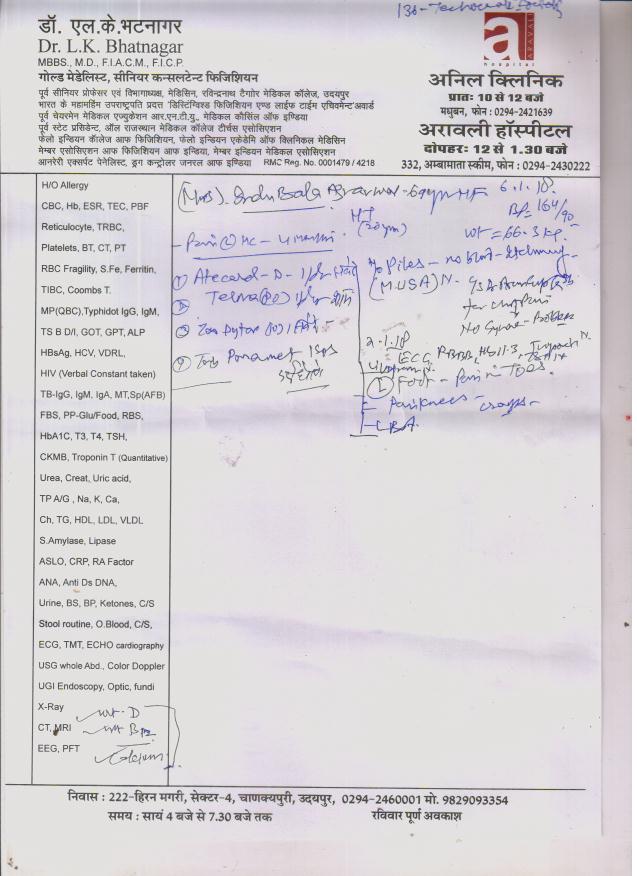 138-
डॉ. एल.के.भटनागर
Dr. L.K. Bhatnagar
MBBS., M.D., F.I.A.C.M., F.I.C.P.
गोल्ड मेडेलिस्ट, सीनियर कन्सलटेन्ट फिजिशियन
पूर्व सीनियर प्रोफेसर एवं विभागाध्यक्ष, मेडिसिन, रविन्द्रनाथ टैगोर मेडिकल कॉलेज, उदयपुर
भारत के महामहिम उपराष्ट्रपति प्रदत्त 'डिस्टिंग्विस्ड फिजिशियन एण्ड लाईफ टाईम एचिवमेन्ट'अवार्ड
पूर्व चेयरमेन मेडिकल एज्युकेशन आर.एन.टी.यु., मेडिकल कौंसिल ऑफ इण्डिया
पूर्व स्टेट प्रसिडेन्ट, ऑल राजस्थान मेडिकल कॉलेज टीर्चस एसोसिएशन
फेलो इन्डियन कॅालेज ऑफ फिजिशियन, फेलो इन्डियन एकेडेमि ऑफ क्लिनिकल मेडिसिन
मेम्बर एसोसिएशन आफ फिजिशियन आफ इण्डिया, मेम्बर इन्डियन मेडिकल एसोसिएशन
आनरेरी एक्सर्पट पेनेलिस्ट, ड्रग कन्ट्रोलर जनरल आफ इण्डिया RMC Reg. No. 0001479 / 4218
a
ARAVALI
hospital
अनिल क्लिनिक
प्रातः 10 से 12 बजे
मधुबन, फोन : 0294-2421639
अरावली हॉस्पीटल
दोपहरः 12 से 1.30 बजे
332, अम्बामाता स्कीम, फोन : 0294-2430222
H/O Allergy
CBC, Hb, ESR, TEC, PBF
Reticulocyte, TRBC,
Platelets, BT, CT, PT
RBC Fragility, S.Fe, Ferritin,
TIBC, Coombs T.
MP(QBC),Typhidot IgG, IgM,
TS B D/I, GOT, GPT, ALP
HBsAg, HCV, VDRL,
HIV (Verbal Constant taken)
TB-IgG, IgM, IgA, MT,Sp(AFB)
FBS, PP-Glu/Food, RBS,
HbA1C, T3, T4, TSH,
CKMB, Troponin T (Quantitative)
Urea, Creat, Uric acid,
TP A/G , Na, K, Ca,
Ch, TG, HDL, LDL, VLDL
S.Amylase, Lipase
ASLO, CRP, RA Factor
ANA, Anti Ds DNA,
Urine, BS, BP, Ketones, C/S
Stool routine, O.Blood, C/S,
ECG, TMT, ECHO cardiography
USG whole Abd., Color Doppler
UGI Endoscopy, Optic, fundi
X-Ray
CT, MRI
EEG, PFT
vit D
vit B12
Calcium
(Mrs). Indu Bala Agrawal - 69yr 6.1.18.
BP= 164/90
wt = 66.3 kg.
HT
(20yrs)
① Atecard-D-
② Telma
③
④ Tab
No Piles - no
(MUSA) N.
2.1.18
ECG, RBBB, Hb 11.3,
Foot - Pain in Toes.
निवास : 222-हिरन मगरी, सेक्टर-4, चाणक्यपुरी, उदयपुर, 0294-2460001 मो. 9829093354
समय : सायं 4 बजे से 7.30 बजे तक रविवार पूर्ण अवकाश